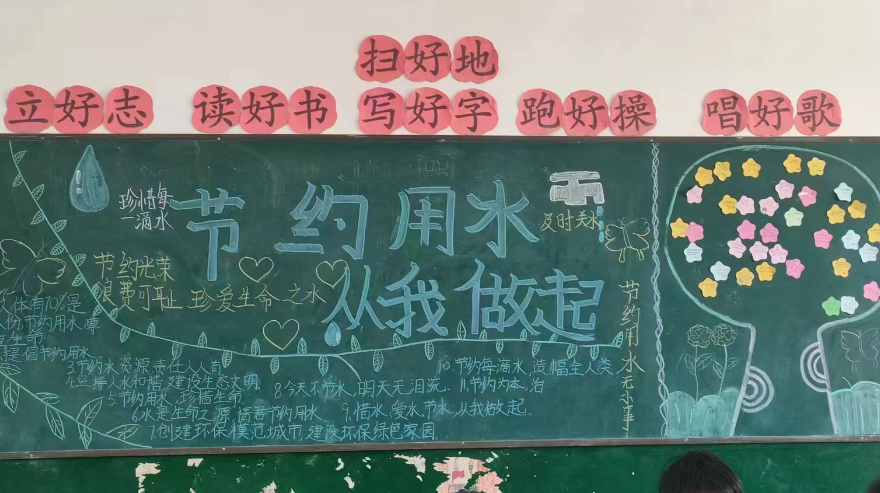 扫好地
立好志 读好书 写好字 跑好操 唱好歌
珍惜每
一滴水
节约用水
从我做起
及时关水
节约光荣
浪费可耻 珍爱生命之水
节约用水无小事
人体有70%是
生命
提倡节约用水
3.节约水资源责任人人有
4.坚持人水和谐 建设生态文明
5.节约用水,珍惜生命
6.水是生命之源 请君节约用水
7.创建环保模范城市,建设环保绿色家园
8.今天不节水,明天无泪流
9.惜水、爱水、节水,从我做起
10.节约每滴水,造福全人类
11.节约为本,治